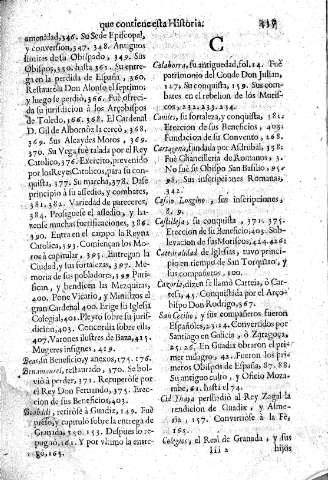 que contiene esta Historia.
amenidad, 346. Su Sede Episcopal,
y conversion, 347. 348. Antiguos
limites de su Obispado, 349. Sus
Obispos, 350. hasta 361. Su entre-
ga en la perdida de España, 360.
Restaurola Don Alonso el septimo;
y luego se perdiò, 366. Fuè ofreci-
da su jurisdicion à los Arçobispos
de Toledo, 166. 368. El Cardenal
D. Gil de Albornòz la cercò, 368.
369. Sus Alcaydes Moros, 369.
370. Su Vega fuè talada por el Rey
Catolico, 376. Exercito, prevenido
por los Reyes Catolicos, para su con-
quista, 377. Su marcha, 378. Dase
principio à su assedio, y combates,
381. 382. Variedad de pareceres,
384. Prosiguese el assedio, y ha-
zense muchas fortificaciones, 386.
390. Entra en el campo la Reyna
Catolica, 393. Comiençan los Mo-
ros à capitular, 395. Entregan la
Ciudad, y sus fortalezas, 397. Me-
moria de sus pobladores, 398. Puri-
fican, y bendicen las Mezquitas,
400. Pone Vicario, y Ministros el
gran Cardenal 400. Erige su Iglesia
Colegial, 401. Pleyto sobre su juris-
dicion, 403. Concordia sobre ella,
407. Varones ilustres de Baza, 415.
Mugeres insignes, 419.
Beneficio, y anexos, 175. 176.
Benamaurel, restaurado, 370. Se bol-
viò à perder, 371. Recuperòse por
el Rey Don Fernando, 375. Erec-
cion de sus Beneficios, 403.
Boabdil, retiròse à Guadix, 149. Fuè
puesto, y capitulo sobre la entrega de
Granada, 150. 153. Despues lo re-
pugnò, 161. Y por vltimo la entre-
gò, 165.
C
Calahorra, su antiguedad, fol. 14. Fuè
patrimonio del Conde Don Julian,
127. Su conquista, 159. Sus com-
bates en el rebelion de los Moris-
cos, 232. 233. 234.
Caniles, su fortaleza, y conquista, 381.
Ereccion de sus Beneficios, 403.
Fundacion de su Convento, 268.
Cartagena, fundada por Asdrubal, 138.
Fuè Chancilleria de Romanos, 3.
No fuè su Obispo San Basilio, 95.
98. Sus inscripciones Romanas,
342.
Casio Longino, sus inscripciones,
8. 9.
Castilleja, su conquista, 371. 375.
Ereccion de su Beneficio, 403. Sub-
levacion de sus Moriscos, 424. 426.
Cathedralidad de Iglesias, tuvo princi-
pio en tiempo de San Torquato, y
sus compañeros, 100.
dizen se llamò Carteia, ò Car-
tela, 45. Conquistada por el Arço-
bispo Don Rodrigo, 367.
San Cecilio, y sus compañeros fueron
Españoles, 23. 24. Convertidos por
Santiago en Galicia, ò Zaragoça,
25. 26. En Guadix obraron el pri-
mer milagro, 42. Fueron los pri-
meros Obispos de España, 87. 88.
Su antiguo culto, y Oficio Moza-
rabe, 61. hasta el 74.
Cid Yhaya persuadiò al Rey Zagal la
rendicion de Guadix, y Alme-
ria, 157. Conviertese à la Fè,
165.
Colegios, el Real de Granada, y sus
Iii 2
hijos